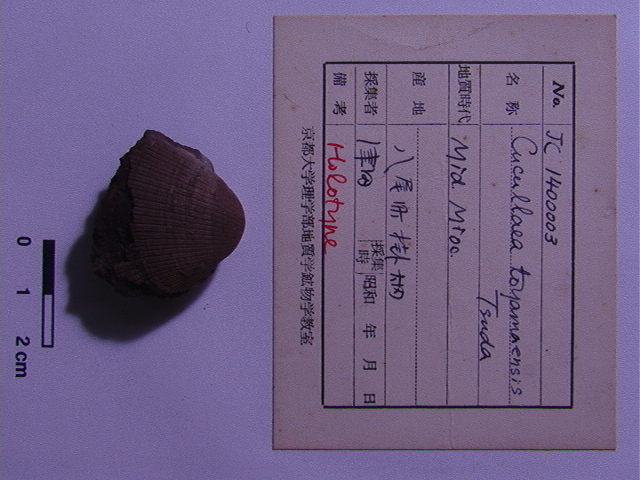 No. JC 1400003
名称 Cucullaea toyamaensis
Tsuda
地質時代 Mid Mioc.
産地 八尾町
採集者 津田 採集時 昭和 年 月 日
備考 Holotype
京都大学理学部地質学鉱物学教室
0 1 2 cm